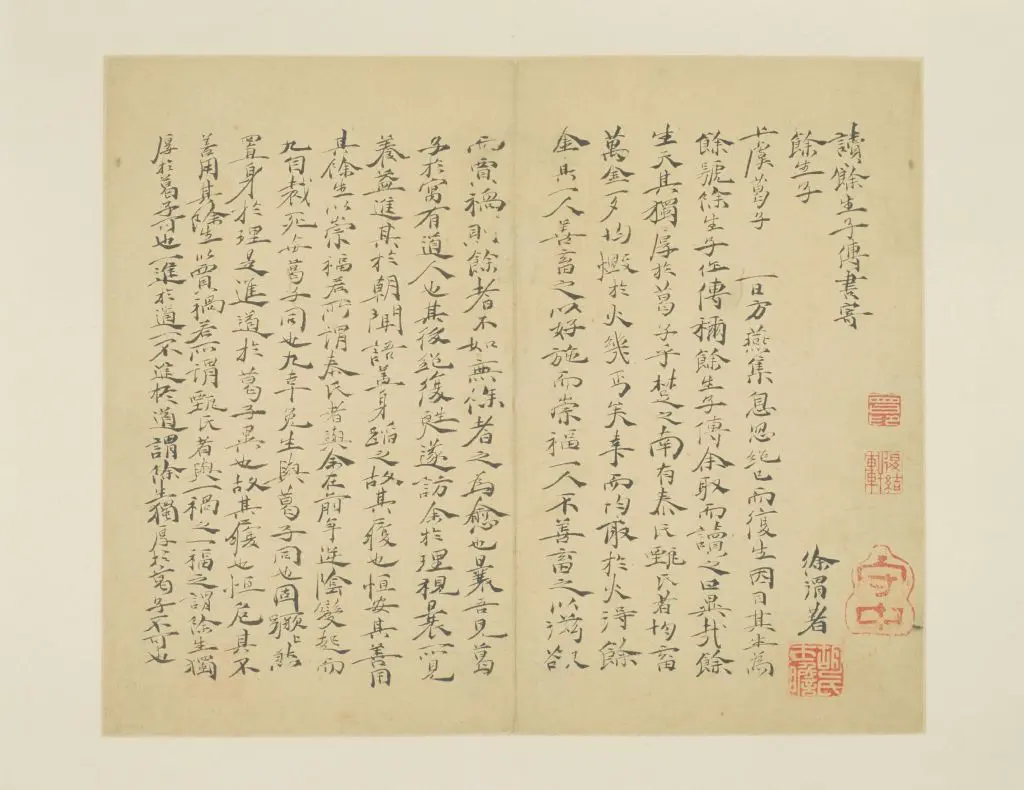 讀餘生子傳書寄
餘生子
徐渭著
上虞葛子 一日方燕集息忽絕已而復生因目其生為
餘號餘生子作傳稱餘生子傳余取而讀之曰異哉餘
生天其獨厚於葛子乎楚之南有秦氏甄氏者均畜
萬金一夕均燬於火幾丐矣幸而均取於火得餘
金其一人善畜之以好施而崇福一人不善畜之以滋欲
而賈禍則餘者不如無餘者之為愈也曩吾見葛
子於窩有道人也其後絕復甦遂訪余於理視曩所見
養益進其於朝聞語蓋身蹈之故其寤也恒安其善用
其餘生以崇福若所謂秦氏者與余在前年逆陰變起而
九自裁死與葛子同也九幸免生與葛子同也固
置身於理是進道於葛子異也故其寤也恒危其不
善用其餘生以賈禍若所謂甄氏者與一禍之一福之謂餘生獨
厚於葛子可也一進於道一不進於道謂餘生獨厚於葛子不可也
守中